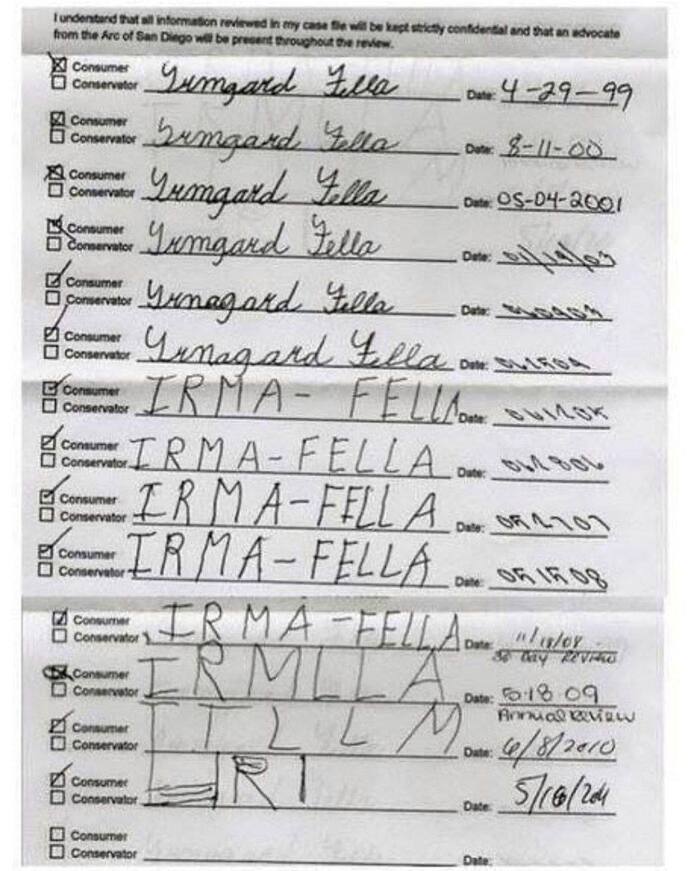 I understand that all information reviewed in my case file will be kept strictly confidential and that an advocate
from the Arc of San Diego will be present throughout the review.
Consumer
Conservator Yrmgard Fella Date: 4-29-99
Consumer
Conservator Yrmgard Fella Date: 8-11-00
Consumer
Conservator Yrmgard Fella Date: 05-04-2001
Consumer
Conservator Yrmgard Fella Date:
Consumer
Conservator Yrnagard Fella Date:
Consumer
Conservator Yrnagard Fella Date:
Consumer
Conservator IRMA- FELLA Date:
Consumer
Conservator IRMA-FELLA Date:
Consumer
Conservator IRMA-FELLA Date: 052707
Consumer
Conservator IRMA-FELLA Date: 051508
Consumer
Conservator IRMA-FELLA Date: 11/18/08
30 Day Review
Consumer
Conservator IRMLLA Date: 5-18 09
Annual Review
Consumer
Conservator ITLLM Date: 6/8/2010
Consumer
Conservator RI Date:
Consumer
Conservator Date: